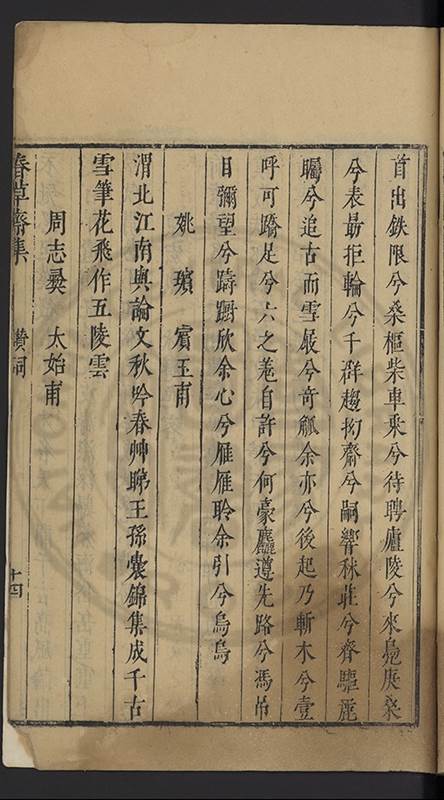 首出鉄限兮桑樞柴車乘兮待聘廬陵兮來鳧庚桑
兮表最拒輪兮千群趨抝齋兮嗣響秝莊兮齊驅 
矚兮追古而雪嚴兮奇觚余亦兮後起乃斬木兮壹
呼可蹻足兮六之菴自許兮何豪 遵先路兮馮吊
日彌望兮躊躕欣余心兮雁雁聆余引兮烏烏
姚璸 賓玉甫
渭北江南與論文秋吟春艸睇王孫囊錦集成千古
雪筆花飛作五陵雲
周志夔 太始甫
春草齋集 贊詞 十四